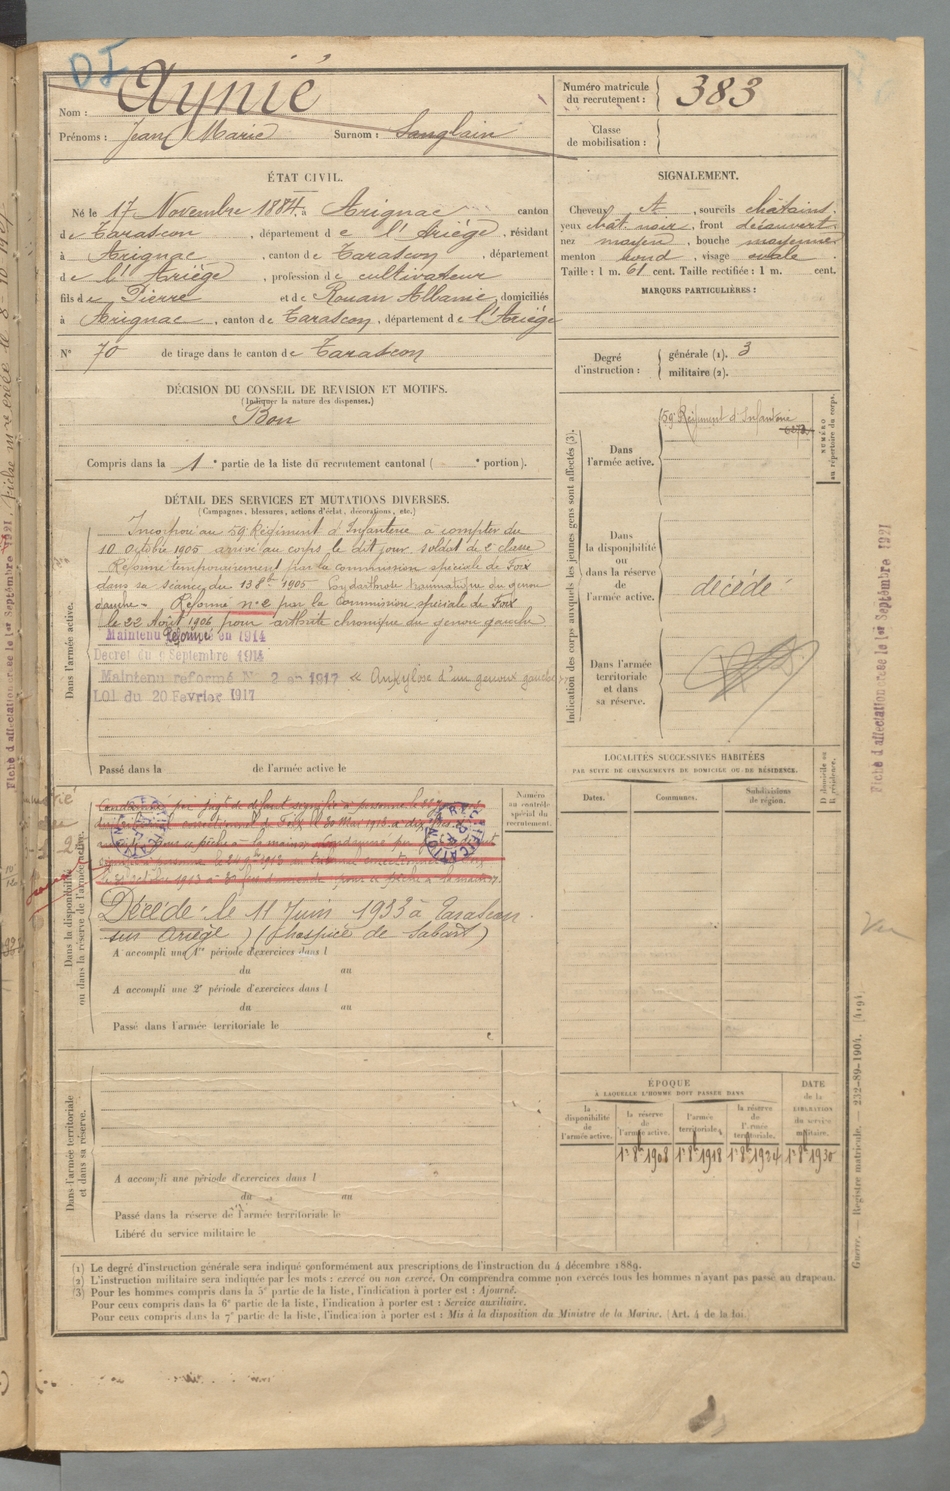 DI
Nom : Aynié
Prénoms : Jean Marie Surnom : Sanglain
Numéro matricule du recrutement : 383
Classe de mobilisation :
ÉTAT CIVIL.
Né le 17 Novembre 1884, à Arignac canton
de Tarascon, département de l'Ariège, résidant
à Arignac, canton de Tarascon, département
de l'Ariège, profession de cultivateur
fils de Pierre et de Rouan Albanie, domiciliés
à Arignac, canton de Tarascon, département de l'Ariège
N° 70 de tirage dans le canton de Tarascon
SIGNALEMENT.
Cheveux et, sourcils châtains.
yeux chât. noir, front découvert
nez moyen, bouche moyenne
menton rond, visage ovale.
Taille : 1 m. 61 cent. Taille rectifiée : 1 m. cent.
MARQUES PARTICULIÈRES :
Degré d'instruction : générale (1). 3
militaire (2).
DÉCISION DU CONSEIL DE REVISION ET MOTIFS.
(Indiquer la nature des dispenses.)
Bon
Compris dans la 1e partie de la liste du recrutement cantonal ( e portion).
DÉTAIL DES SERVICES ET MUTATIONS DIVERSES.
(Campagnes, blessures, actions d'éclat, décorations, etc.)
Dans l'armée active.
Incorporé au 59e Régiment d'Infanterie à compter du
10 Octobre 1905 arrivé au corps le dit jour soldat de 2e classe
Réformé temporairement par la commission spéciale de Foix
dans sa séance du 13 8bre 1905 hydarthrose traumatique du genou
gauche - Réformé n° 2 par la Commission spéciale de Foix
le 22 Août 1906 pour arthrite chronique du genou gauche
Maintenu Réformé en 1914
Décret du 9 Septembre 1914
Maintenu réformé N° 2 en 1917 « Ankylose d'un genoux gauche »
Loi du 20 Février 1917
Passé dans la de l'armée active le
Dans la disponibilité ou dans la réserve de l'armée active.
Décédé le 11 Juin 1933 à Tarascon
sur Ariège (hospice de Sabart)
A accompli une 1re période d'exercices dans l
du au
A accompli une 2e période d'exercices dans l
du au
Passé dans l'armée territoriale le
Dans l'armée territoriale et dans sa réserve.
A accompli une période d'exercices dans l
du au
Passé dans la réserve de l'armée territoriale le
Libéré du service militaire le
Numéro au contrôle spécial du recrutement.
Indication des corps auxquels les jeunes gens sont affectés (3).
NUMÉRO au répertoire du corps.
Dans l'armée active.
59e Régiment d'Infanterie
Dans la disponibilité ou dans la réserve de l'armée active.
décédé
Dans l'armée territoriale et dans sa réserve.
LOCALITÉS SUCCESSIVES HABITÉES
PAR SUITE DE CHANGEMENTS DE DOMICILE OU DE RÉSIDENCE.
Dates. Communes. Subdivisions de région. D domicile ou R résidence.
ÉPOQUE
À LAQUELLE L'HOMME DOIT PASSER DANS
DATE de la LIBÉRATION du service militaire.
la disponibilité de l'armée active.
la réserve de l'armée active.
l'armée territoriale.
la réserve de l'armée territoriale.
1er 8bre 1908 1er 8bre 1918 1er 8bre 1924 1er 8bre 1930
(1) Le degré d'instruction générale sera indiqué conformément aux prescriptions de l'instruction du 4 décembre 1889.
(2) L'instruction militaire sera indiquée par les mots : exercé ou non exercé. On comprendra comme non exercés tous les hommes n'ayant pas passé au drapeau.
(3) Pour les hommes compris dans la 5e partie de la liste, l'indication à porter est : Ajourné.
Pour ceux compris dans la 6e partie de la liste, l'indication à porter est : Service auxiliaire.
Pour ceux compris dans la 7e partie de la liste, l'indication à porter est : Mis à la disposition du Ministre de la Marine. (Art. 4 de la loi.)
Fiche d'affectation créée le 1er Septembre 1921
Guerre. — Registre matricule. — 232-89-1904. [4194]
Fiche d'affectation créée le 1er Septembre 1921